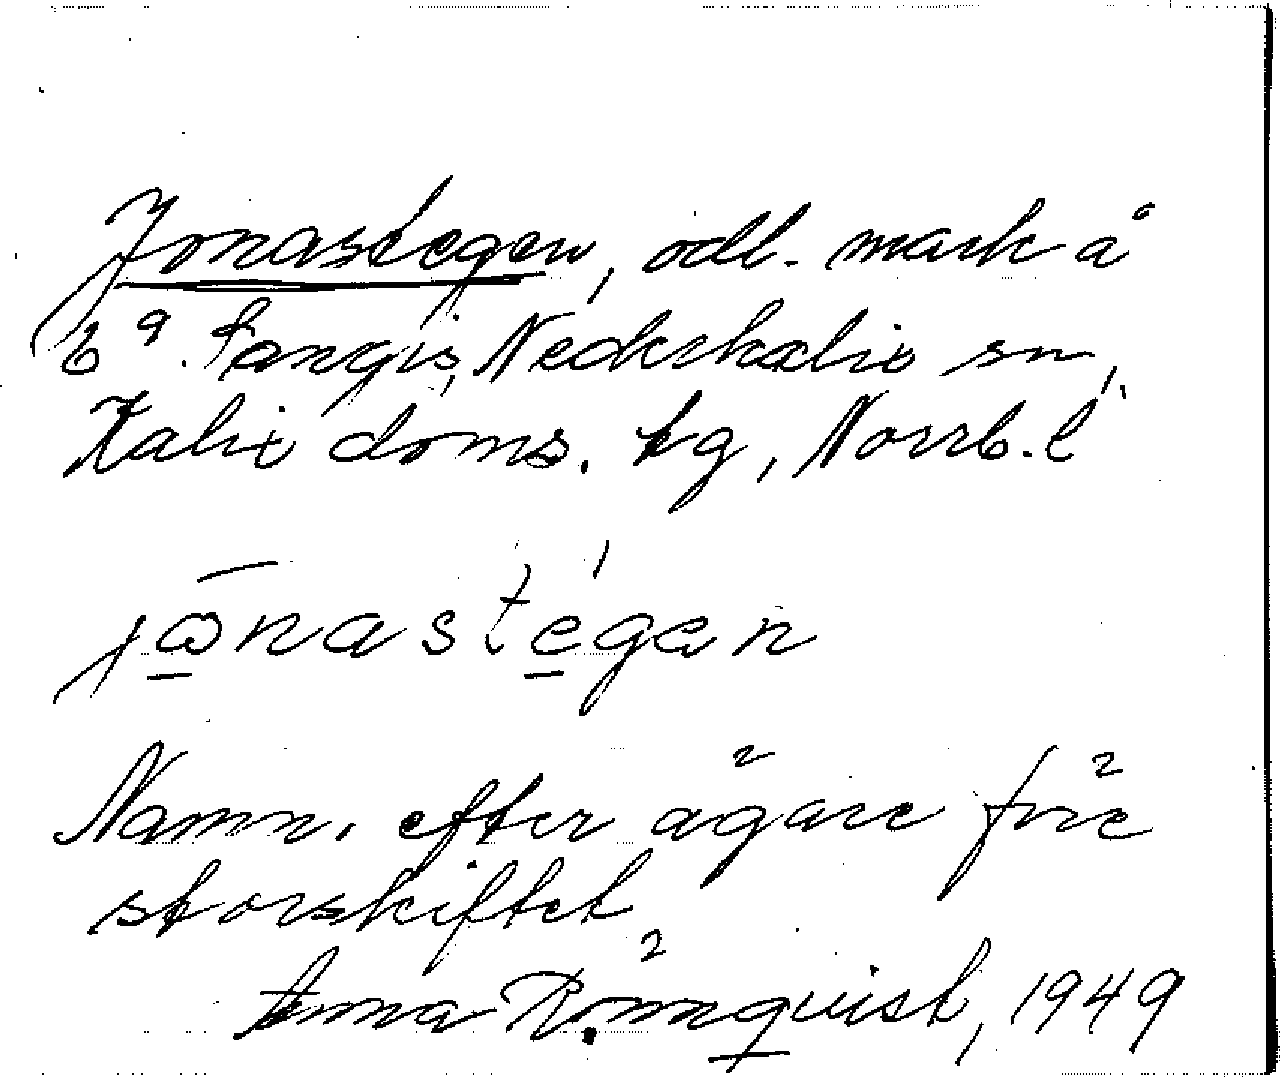 Jonastegen, odl. mark å
69 Sangis, Nederkalix sn,
Kalix doms. tg, Norrb. l
jōnastegen
Namn. efter ägare före
storskiftet
Anna Rönnquist, 1949